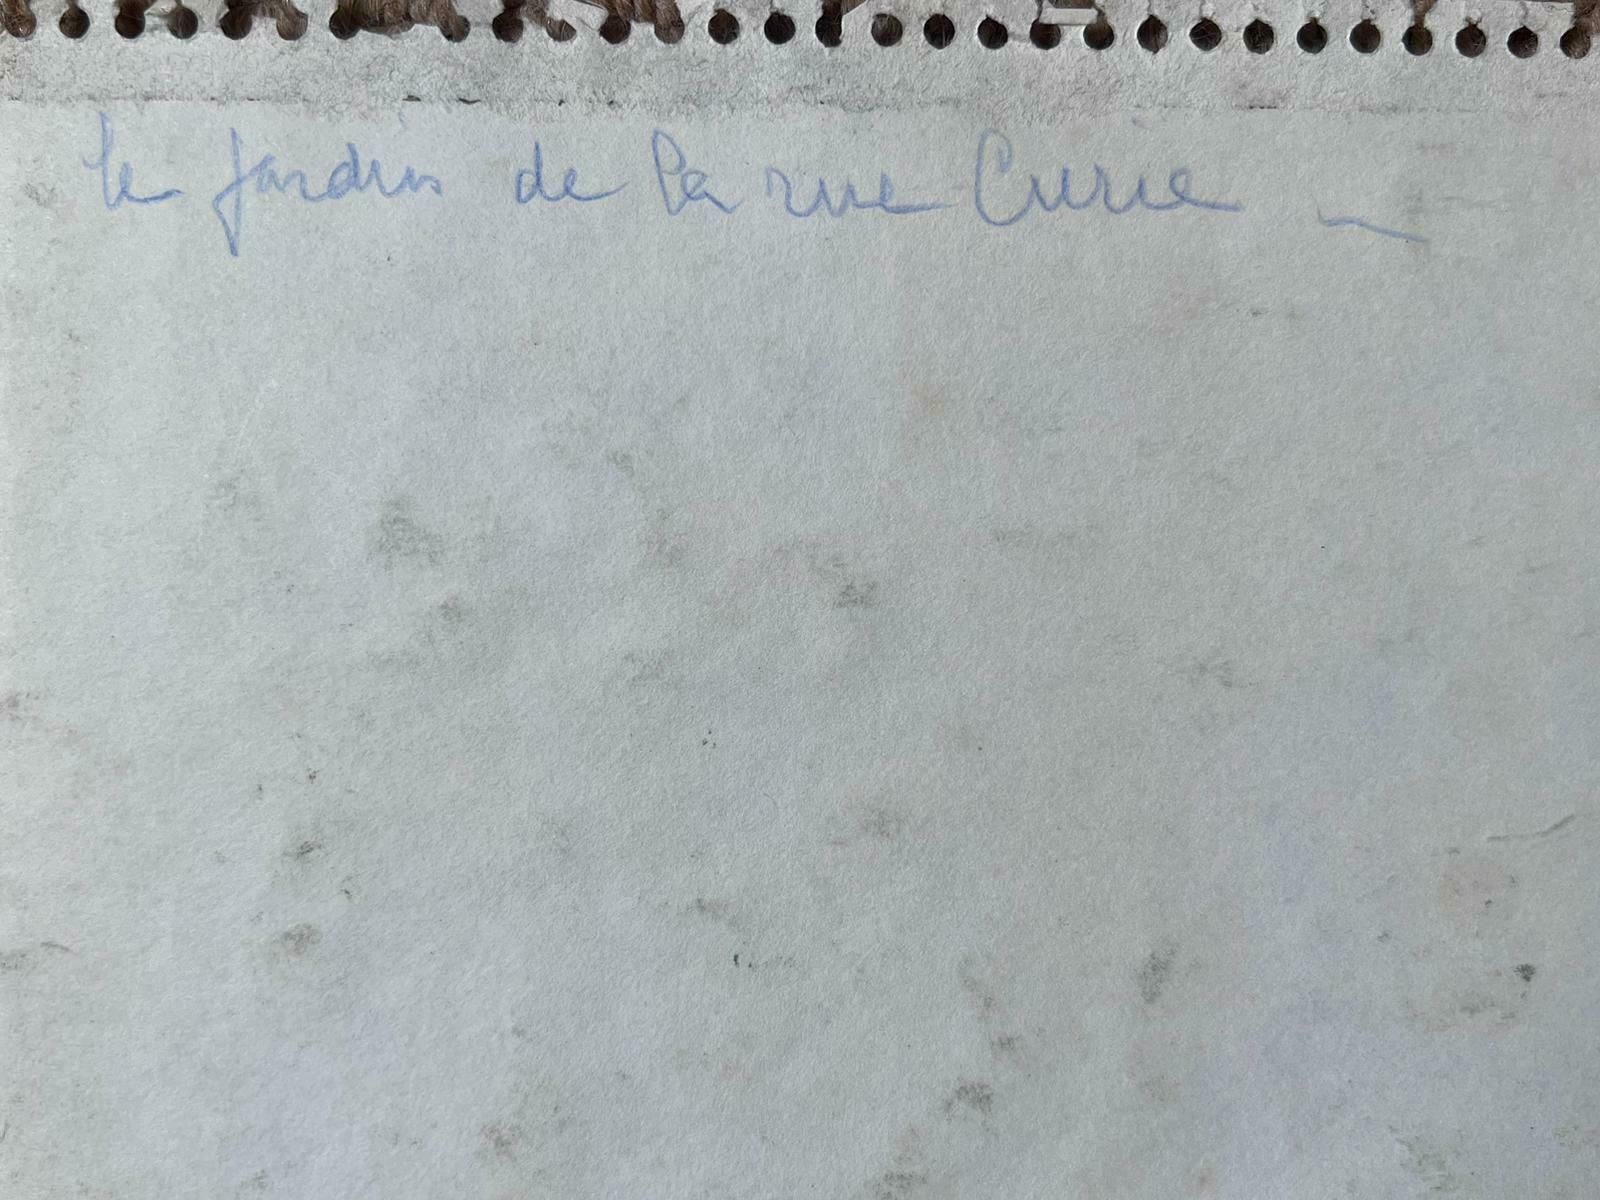 le jardin de la rue Curie _